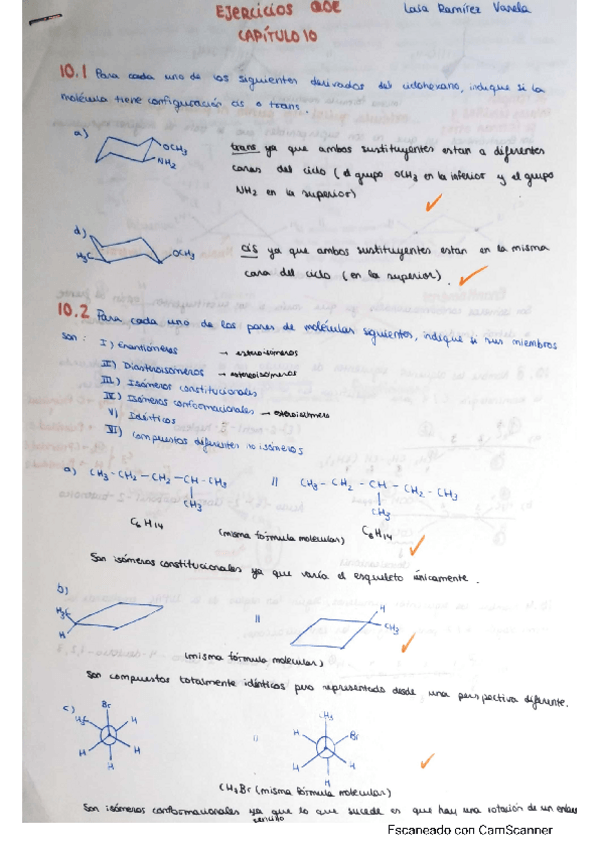 EJERCICIOS QOE Laia Ramírez Varela
CAPÍTULO 10
10.1 Para cada uno de los siguientes derivados del ciclohexano, indique si la
molécula tiene configuración cis o trans.
a)
OCH3
NH2
trans ya que ambos sustituyentes estan a diferentes
caras del ciclo (el grupo OCH3 en la inferior y el grupo
NH2 en la superior)
d)
H3C
OCH3
cis ya que ambos sustituyentes estan en la misma
cara del ciclo (en la superior).
10.2 Para cada uno de los pares de moléculas siguientes, indique si sus miembros
son: I) Enantiómeros → estereoisómeros
II) Diastereoisómeros → estereoisómeros
III) Isómeros constitucionales
IV) Isómeros conformacionales → estereoisómero
V) Idénticos
VI) Compuestos diferentes no isómeros
a) CH3-CH2-CH2-CH-CH3 || CH3-CH2-CH-CH2-CH3
CH3 CH3
C6H14 (misma fórmula molecular) C6H14
Son isómeros constitucionales ya que varía el esqueleto únicamente.
b)
H3C
H
||
H
CH3
(misma fórmula molecular)
Son compuestos totalmente idénticos pero representado desde una perspectiva diferente.
c)
Br
H3C H
H H
H
||
CH3
H Br
H H
H
(misma fórmula molecular)
Son isómeros conformacionales ya que lo que sucede es que hay una rotación de un enlace
sencillo
Escaneado con CamScanner